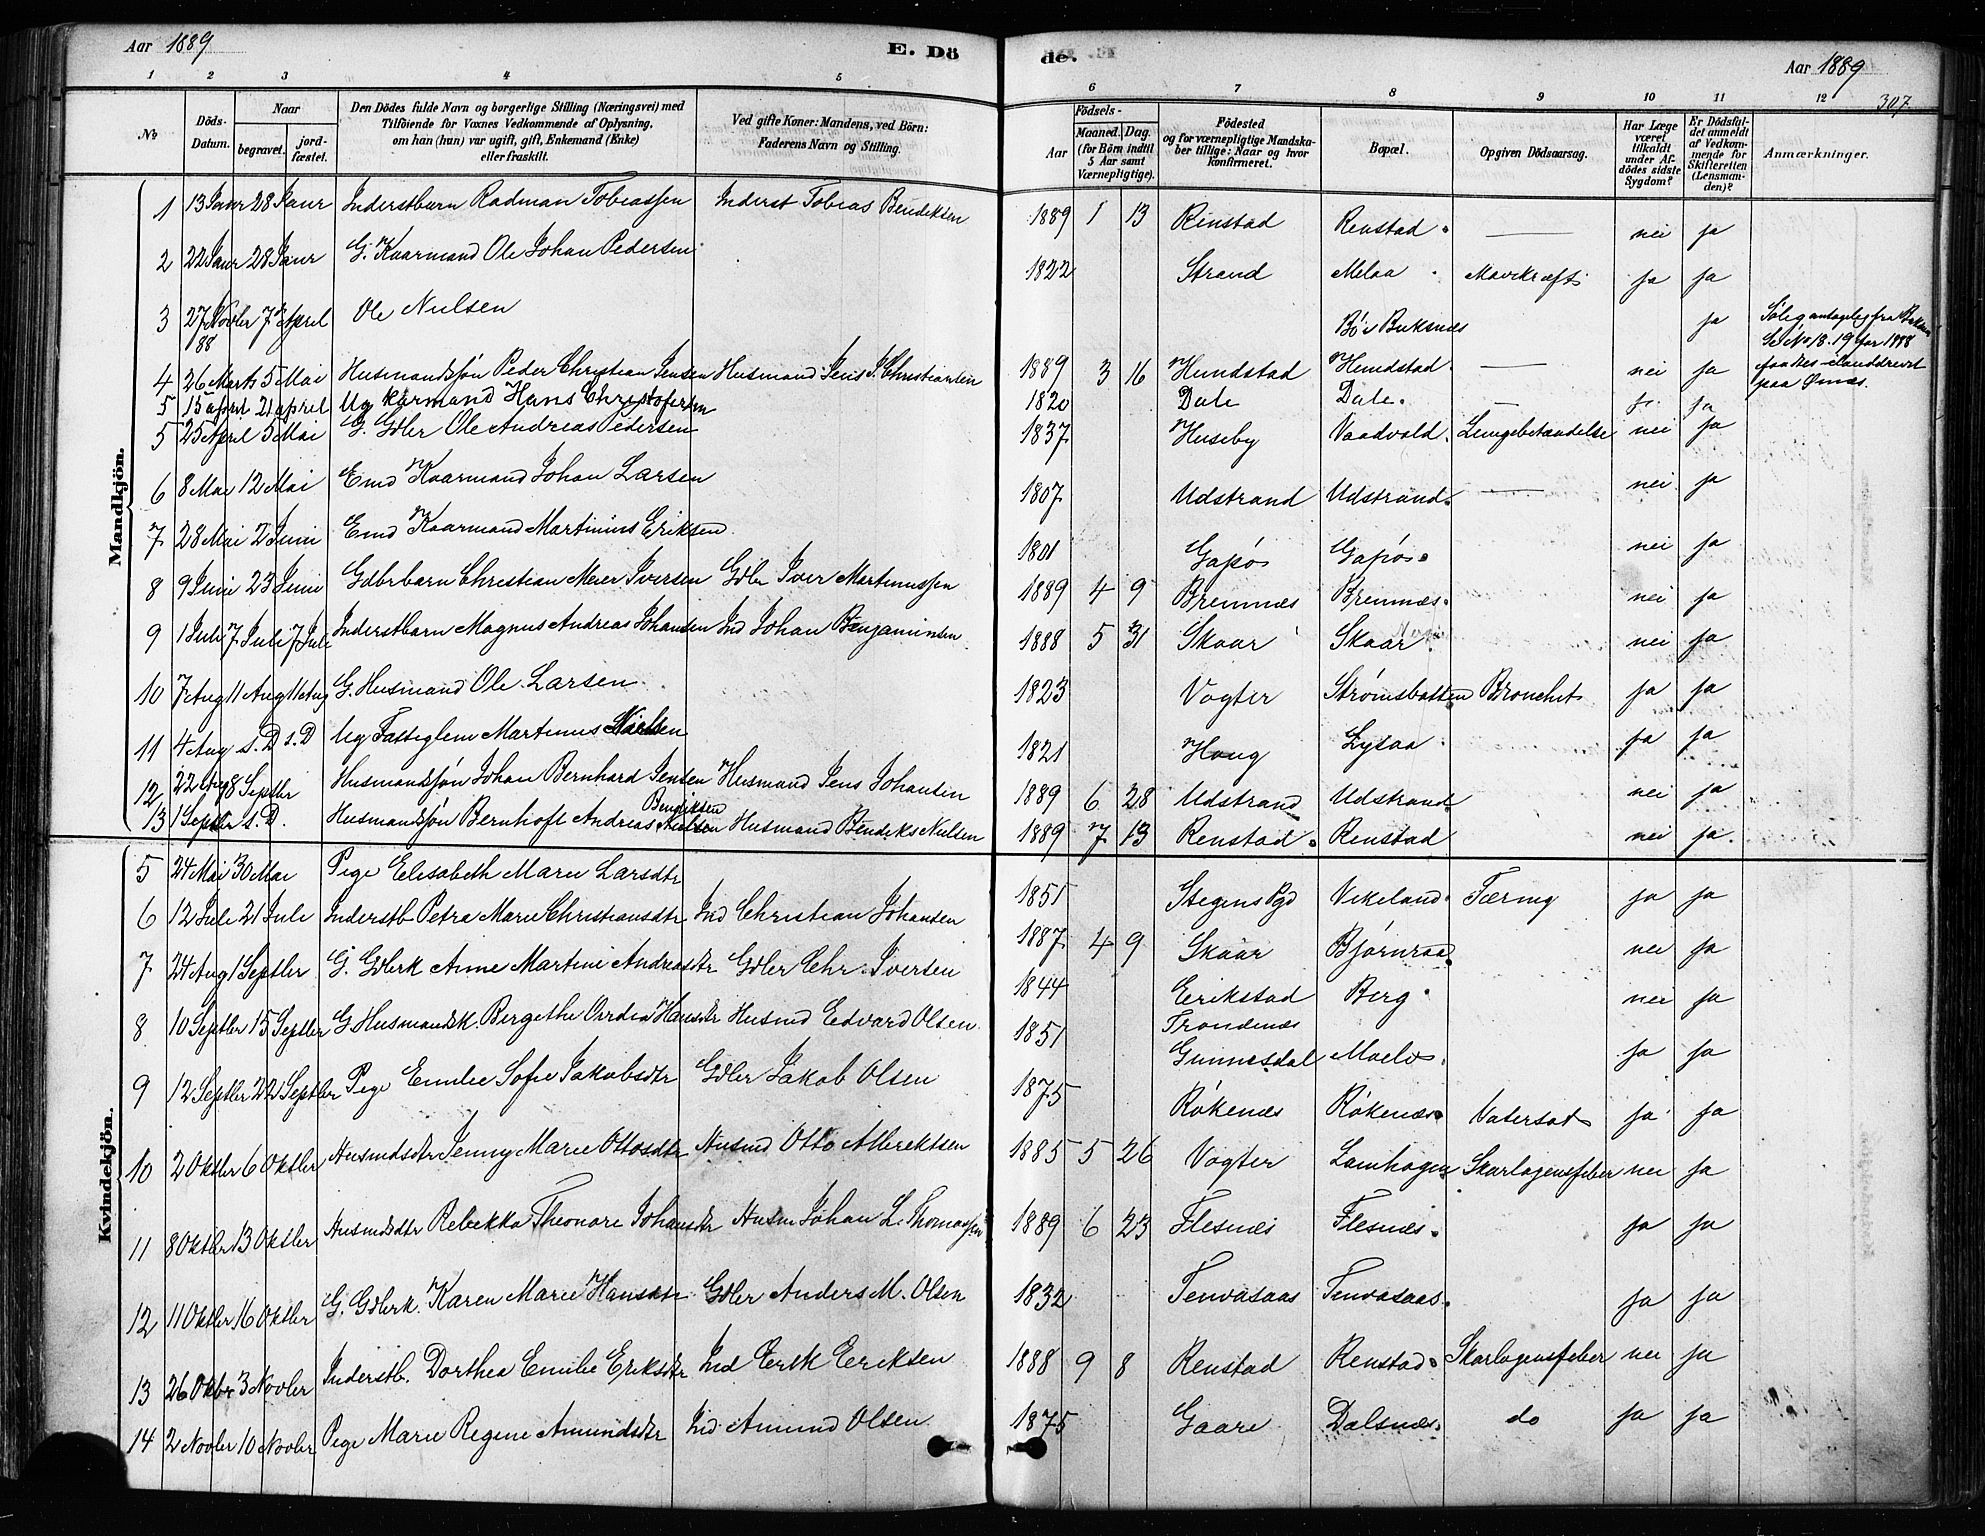 Aar 1889
E. Dö
de.
Aar 1889
307.
1 2 3 4 5 6 7 8 9 10 11 12
No
Döds-Datum.
Naar
begravet.
jord-fæstet.
Den Dödes fulde Navn og borgerlige Stilling (Næringsvei) med
Tilföiende for Voxnes Vedkommende af Oplysning,
om han (hun) var ugift, gift, Enkemand (Enke)
eller fraskilt.
Ved gifte Koner: Mandens, ved Börn:
Faderens Navn og Stilling.
Födsels-
Aar
Maaned. Dag.
(for Börn indtil
5 Aar samt
Værnepligtige).
Födested
og for værnepligtige Mandska-
ber tillige: Naar og hvor
konfirmeret.
Bopæl.
Opgiven Dödsaarsag.
Har Læge
været
tilkaldt
under Af-
dödes sidste
Sygdom?
Er Dödsfal-
det anmeldt
af Vedkom-
mende for
Skifteretten
(Lensman-
den)?
Anmærkninger.
Mandkjön.
1 13 Janr 28 Janr Inderstbarn Radman Tobiassen Inderst Tobias Bendiksen 1889 1 13 Renstad Renstad. — nei ja
2 22 Janr 28 Janr G. Kaarmand Ole Johan Pedersen 1822 Strand Melaa Mavekræft ja ja
3 27 Novbr 88 7 April Ole Nielsen Bø i Buksnæs ja
4 26 Marts 5 Mai Husmandssøn Peder Christian Jensen Husmand Jens J. Christiansen 1889 3 16 Hundstad Hundstad. — nei ja
5 15 april 21 april Ug karmand Hans Christofersen 1820 Dale Dale. — ja
5 25 April 5 Mai G. Gdbr Ole Andreas Pedersen 1837 Huseby Vaadvold. Lungebetændelse nei ja
6 8 Mai 12 Mai Emd Kaarmand Johan Larsen 1807 Udstrand Udstrand. — nei ja
7 28 Mai 2 Juni Emd Kaarmand Martinius Eriksen 1801 Gapøs Gapøs. nei ja
8 9 Juni 23 Juni Gdbrbarn Christian Meier Iversen Gdbr Iver Martinussen 1889 4 9 Bremnæs Bremnæs. nei ja
9 1 Juli 7 Juli 7 Juli Inderstbarn Magnus Andreas Johansen Ind Johan Benjaminsen 1888 5 31 Skaar Skaar nei ja
10 7 Aug 11 Aug 11 Aug G. Husmand Ole Larsen 1823 Vogter Strømsbotten Bronchit ja ja
11 4 Aug s. D s. D Ug Fattiglem Martinus Nielsen 1821 Houg Lysaa. ja ja
12 22 Aug 8 Septbr Husmandssøn Johan Bernhard Jensen Husmand Jens Johansen 1889 6 28 Udstrand Udstrand. nei ja
13 1 Septbr s. D. Husmandssøn Bernhoft Andreas Bendiksen Husmand Bendiks Nielsen 1889 7 13 Renstad. Renstad nei ja.
Kvindekjön.
5 24 Mai 30 Mai Pige Elisabeth Marie Larsdtr 1851 Stegens Pgd Vikeland. Tæring ja ja
6 12 Juli 21 Juli Inderstb Petra Marie Christiansdtr Ind Christian Johansen 1887 4 9 Skaar Bjørnraa. nei ja
7 24 Aug 1 Septbr G. Gdbrk Anne Martine Andreasdtr Gdbr Chr. Iversen 1844 Erikstad Berg. nei ja
8 10 Septbr 15 Septbr G Husmandsk. Bergethe Hansdtr Husmd Edvard Olsen 1851 Trondenæs
Gunnesdal Moelv. ja ja
9 12 Septbr 22 Septbr Pige Emilie Sofie Jakobsdtr Gdbr Jakob Olsen 1875 Røkenæs Røkenæs. Vatersot ja ja
10 2 Oktbr 6 Oktbr Husmdsdtr Jenny Marie Ottosdtr Husmd Otto Albrektsen 1885 5 26 Vogter Lamhagen Skarlagensfeber nei ja
11 8 Oktbr 13 Oktbr Husmdsdtr Rebekka Theonore Johansdtr Husm Johan L. Thomassen 1889 6 23 Flesnæs Flesnæs. ja ja
12 11 Oktbr 16 Oktbr G. Gdbrk. Karen Marie Hansdtr Gdbr Anders M. Olsen 1832 Tenvasaas Tenvasaas. ja ja
13 26 Oktbr 3 Novbr Inderstb. Dorthea Emilie Eriksdtr Ind Erik Eriksen 1888 9 8 Renstad Renstad. Skarlagensfeber nei ja
14 2 Novbr 10 Novbr Pige Marie Regine Amundsdtr Ind Amund Olsen 1875 Gaare Dalsnæs. do ja ja